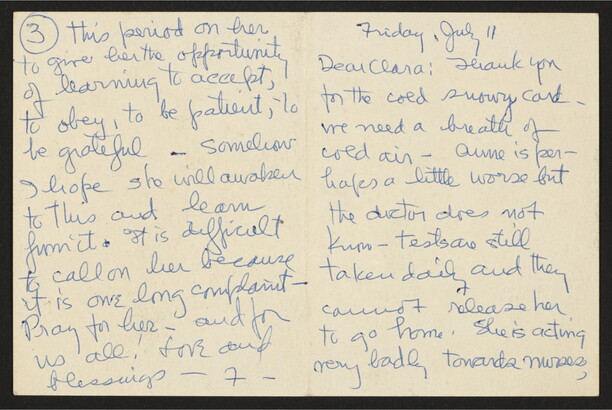 ③ this period on her
to give her the opportunity
of learning to accept,
to obey, to be patient, to
be grateful - Somehow
I hope she will awaken
to this and learn
from it. It is difficult
to call on her because
it is one long complaint -
Pray for her - and for
us all! Love and
blessings - 7 -
Friday, July 11
Dear Clara: Thank you
for the cold snowy card -
we need a breath of
cold air - Anne is per-
haps a little worse but
the doctor does not
know - tests are still
taken daily and they
cannot release her
to go home. She is acting
very badly towards nurses,